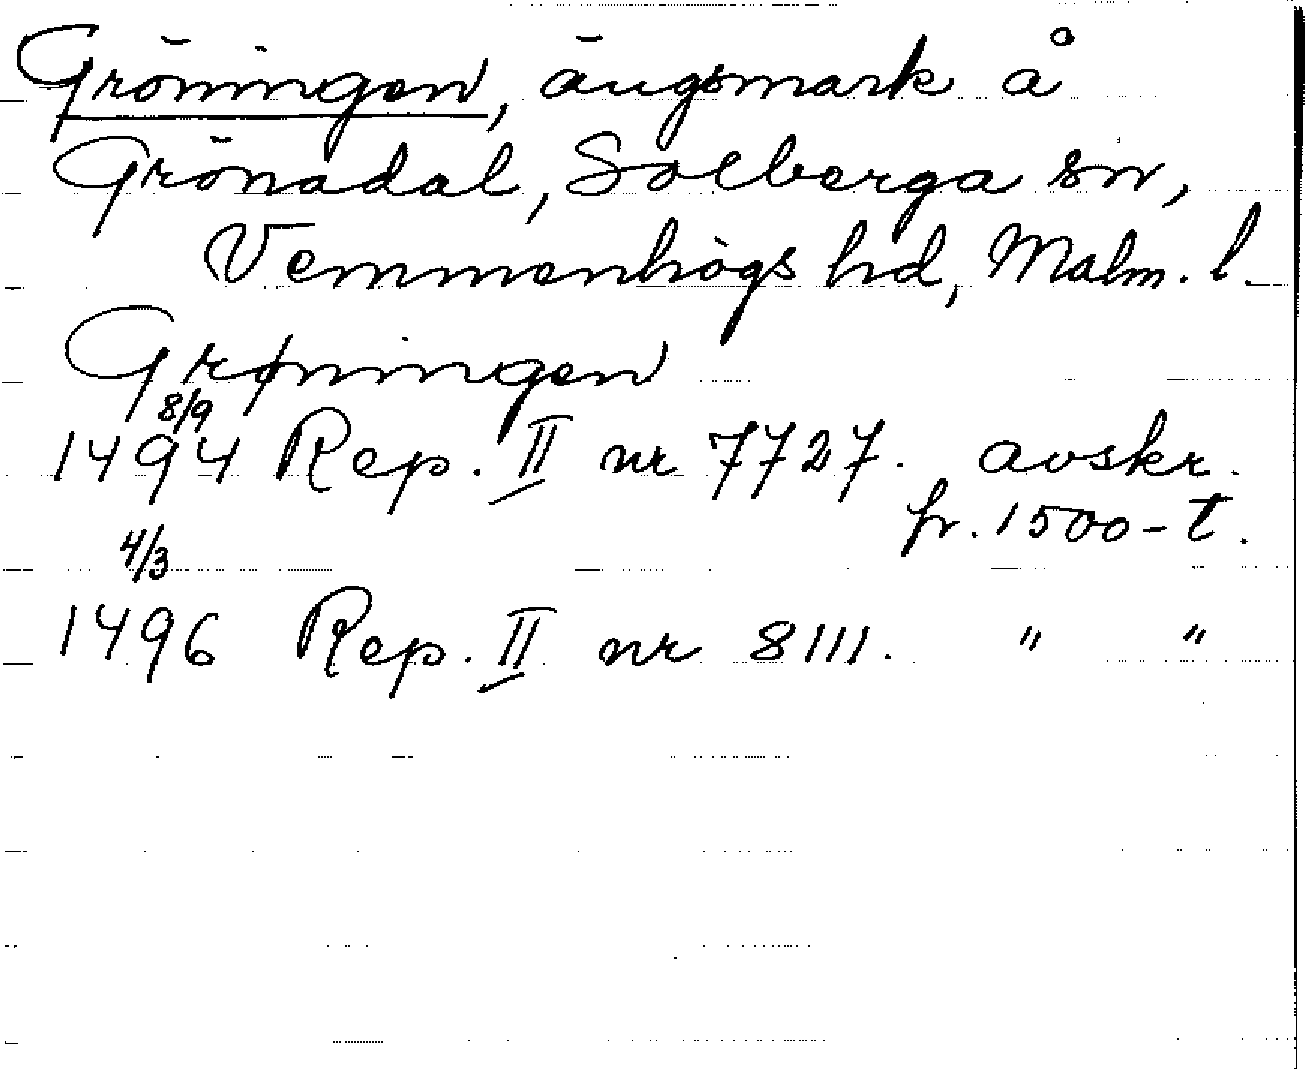 Gröningen, ängsmark å
Grönadal, Solberga sn,
Vemmenhögs hd, Malm. l.
Grøningen
8/9
1494 Rep. II nr 7727. avskr.
fr. 1500-t.
4/3
1496 Rep. II nr 8111. " "